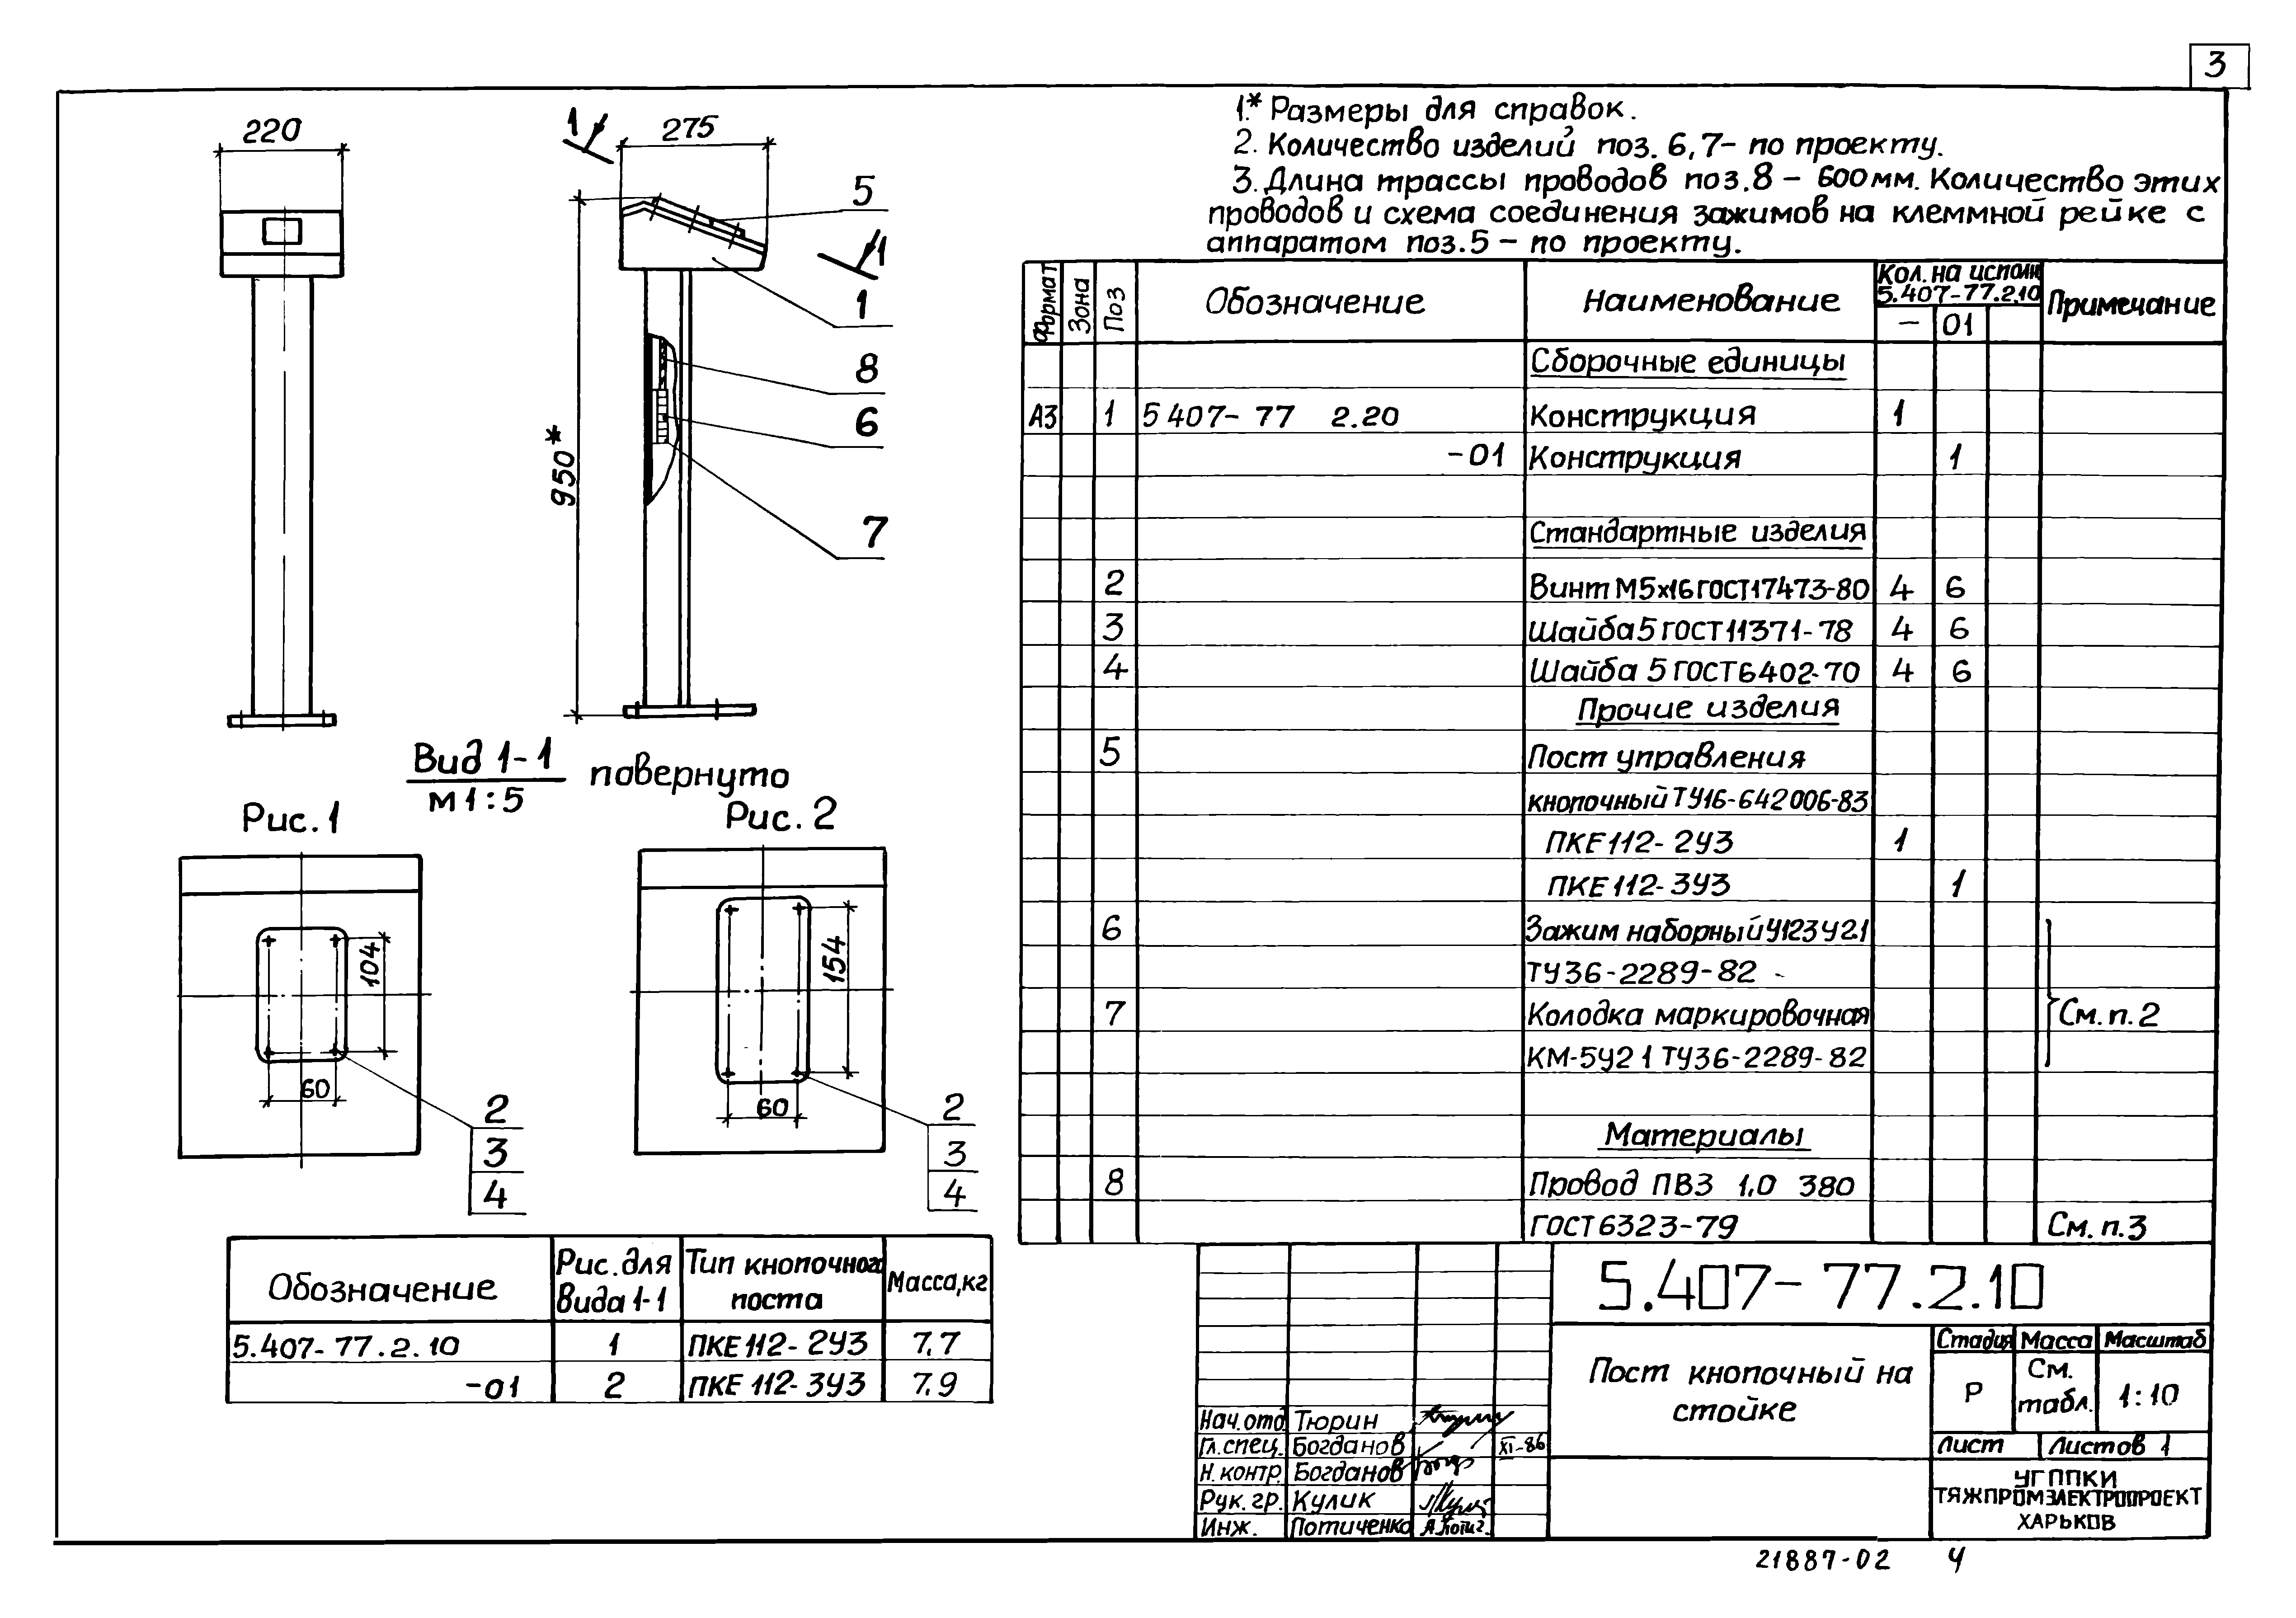 3
1.* Размеры для справок.
2. Количество изделий поз. 6,7 - по проекту.
3. Длина трассы проводов поз.8 - 600мм. Количество этих
проводов и схема соединения зажимов на клеммной рейке с
аппаратом поз.5 - по проекту.
220
1
275
5
1
1
8
6
950*
7
Вид 1-1 повернуто
М 1:5
Рис.1
Рис. 2
104
60
2
3
4
154
60
2
3
4
Формат Зона Поз Обозначение Наименование Кол. на исполн 5.407-77.2.10 Примечание
- 01
Сборочные единицы
А3 1 5 407- 77 2.20 Конструкция 1
-01 Конструкция 1
Стандартные изделия
2 Винт М5х16 ГОСТ17473-80 4 6
3 Шайба 5 ГОСТ 11371-78 4 6
4 Шайба 5 ГОСТ6402-70 4 6
Прочие изделия
5 Пост управления
кнопочный ТУ16-642 006-83
ПКЕ 112- 2У3 1
ПКЕ 112- 3У3 1
6 Зажим наборный У123У2.1
ТУ36-2289-82
7 Колодка маркировочная См. п. 2
КМ-5У2 1 ТУ36-2289-82
Материалы
8 Провод ПВ3 1,0 380
ГОСТ 6323-79 См. п.3
Обозначение Рис. для Вида 1-1 Тип кнопочного поста Масса, кг
5.407- 77.2.10 1 ПКЕ 112- 2У3 7,7
-01 2 ПКЕ 112- 3У3 7,9
5.407- 77.2.10
Пост кнопочный на
стойке
Стадия Масса Масштаб
Р См. табл. 1:10
Лист Листов 1
УГППКИ
ТЯЖПРОМЭЛЕКТРОПРОЕКТ
ХАРЬКОВ
Нач.отд Тюрин
Гл.спец. Богданов XI-86
Н. контр. Богданов
Рук. гр. Кулик
Инж. Потиченко
21887-02 4